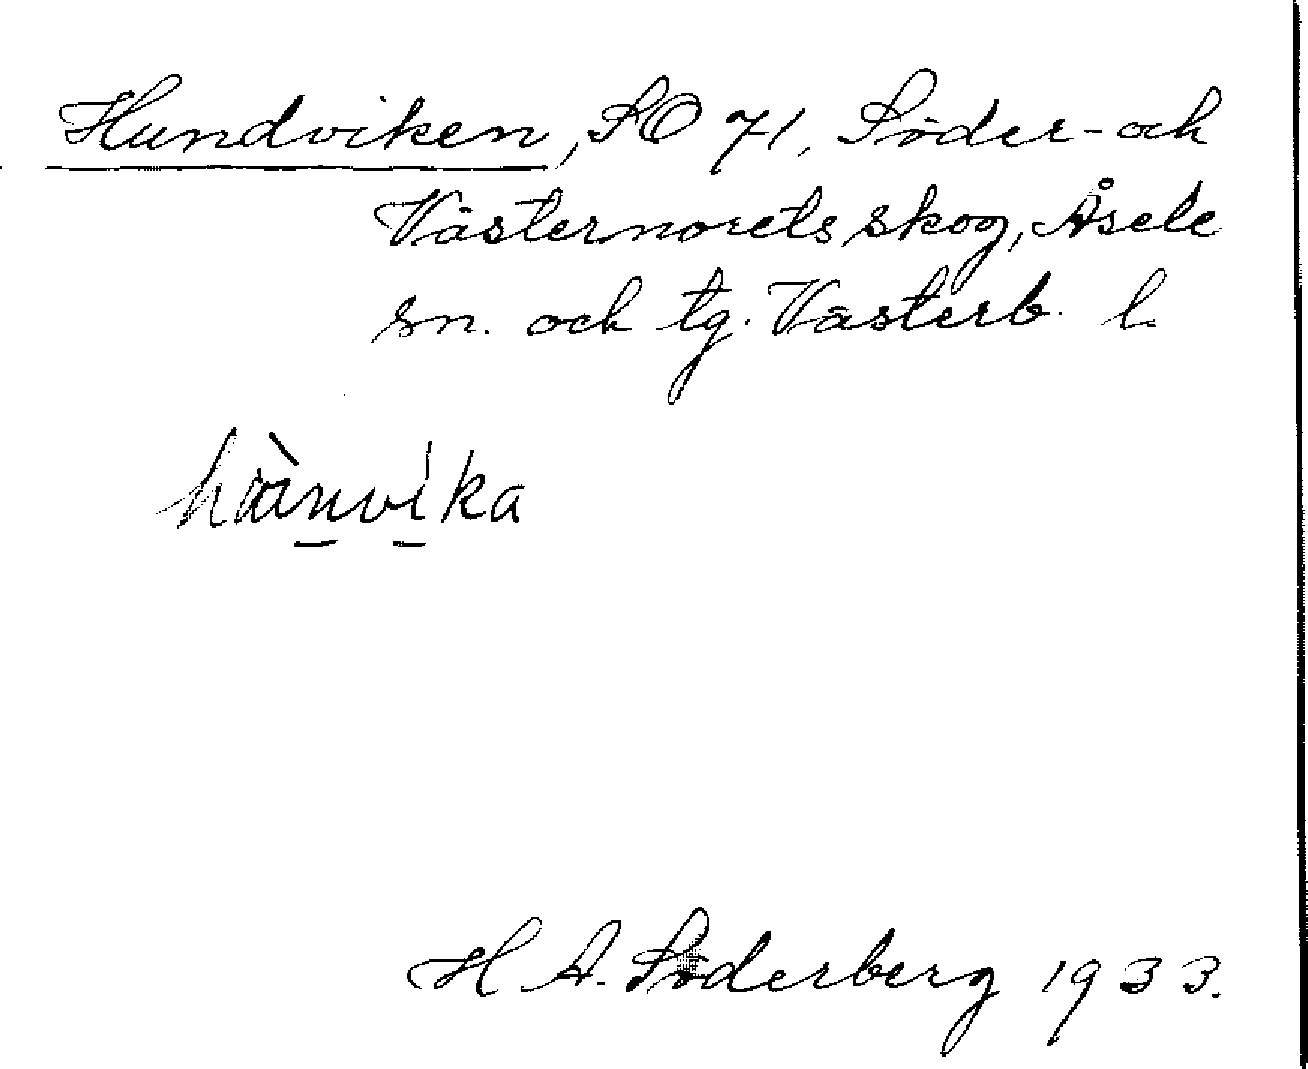 Hundviken, SO 71, Söder- och
Västernorets skog, Åsele
sn. och tg. Västerb. l.
H. A. Söderberg 1933.